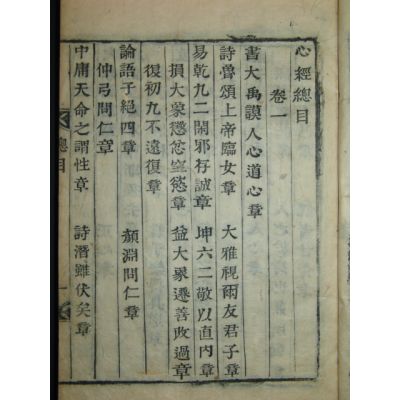 心經總目
卷一
書大禹謨人心道心章
詩魯頌上帝臨女章 大雅視爾友君子章
易乾九二閑邪存誠章 坤六二敬以直內章
損大象懲忿窒慾章 益大象遷善改過章
復初九不遠復章
論語子絕四章 顏淵問仁章
仲弓問仁章
中庸天命之謂性章 詩潛雖伏矣章
總目 一